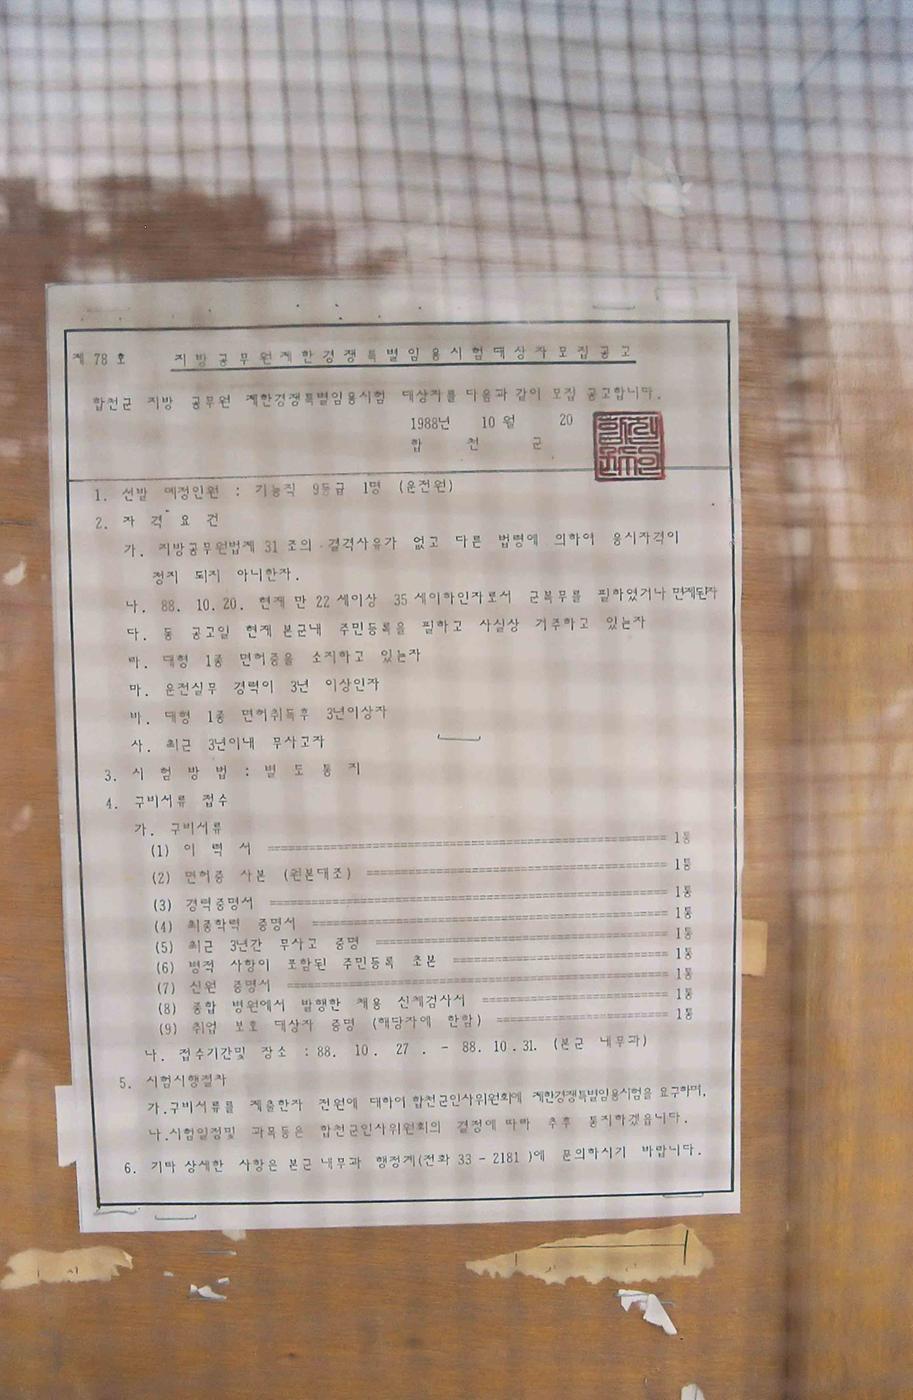 제 78 호 지방공무원제한경쟁특별임용시험대상자모집공고
합천군 지방 공무원 제한경쟁특별임용시험 대상자를 다음과 같이 모집 공고합니다.
1988년 10 월 20
합 천 군
1. 선발 예정인원 : 기능직 9등급 1명 (운전원)
2. 자 격 요 건
가. 지방공무원법제 31 조의 결격사유가 없고 다른 법령에 의하여 응시자격이
정지 되지 아니한자.
나. 88. 10. 20. 현재 만 22 세이상 35 세이하인자로서 군복무를 필하였거나 면제된자
다. 동 공고일 현재 본군내 주민등록을 필하고 사실상 거주하고 있는자
라. 대형 1종 면허증을 소지하고 있는자
마. 운전실무 경력이 3년 이상인자
바. 대형 1종 면허취득후 3년이상자
사. 최근 3년이내 무사고자
3. 시 험 방 법 : 별 도 통 지
4. 구비서류 접수
가. 구비서류
(1) 이 력 서 ================ 1통
(2) 면허증 사본 (원본대조) ================ 1통
(3) 경력증명서 ================ 1통
(4) 최종학력 증명서 ================ 1통
(5) 최근 3년간 무사고 증명 ================ 1통
(6) 병적 사항이 포함된 주민등록 초본 ================ 1통
(7) 신원 증명서 ================ 1통
(8) 종합 병원에서 발행한 채용 신체검사서 ================ 1통
(9) 취업 보호 대상자 증명 (해당자에 한함) ================ 1통
나. 접수기간및 장소 : 88. 10. 27. - 88. 10. 31. (본군 내무과)
5. 시험시행절차
가.구비서류를 제출한자 전원에 대하여 합천군인사위원회에 제한경쟁특별임용시험을 요구하며,
나.시험일정및 과목등은 합천군인사위원회의 결정에 따라 추후 통지하겠읍니다.
6. 기타 상세한 사항은 본군 내무과 행정계(전화 33 - 2181 )에 문의하시기 바랍니다.